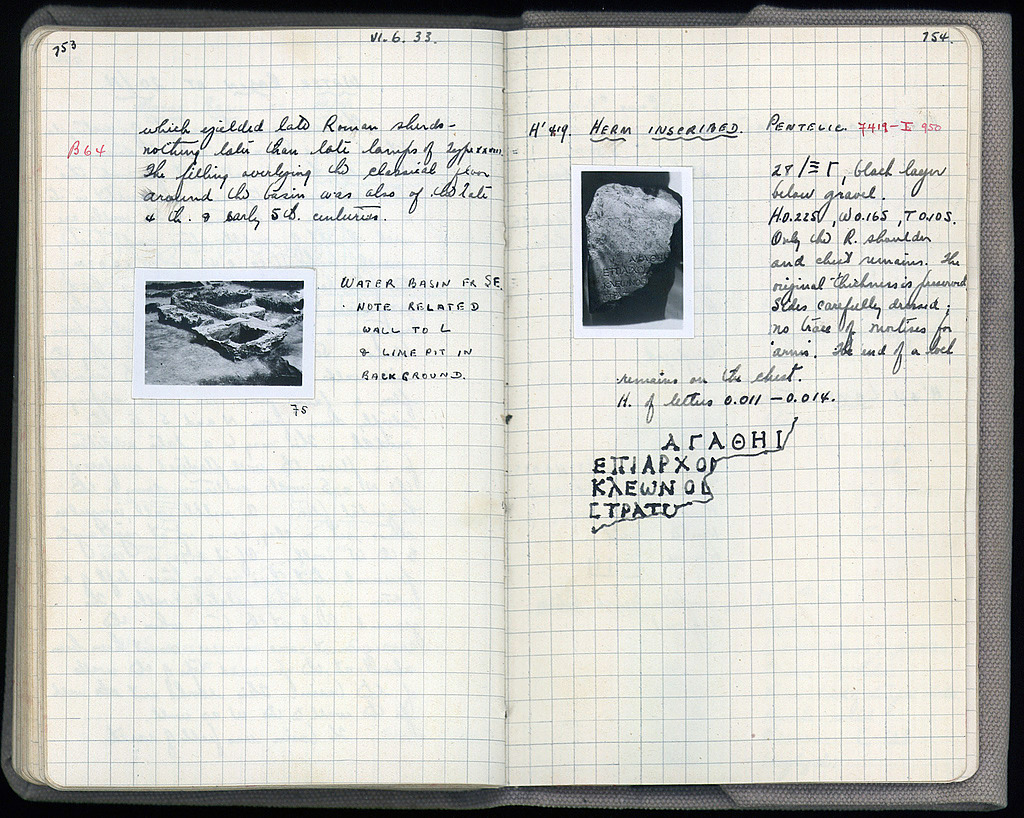 753
VI. 6. 33.
which yielded late Roman sherds -
B 64
nothing later than late lamps of Type
The filling overlying the classical floor
around the basin was also of the late
4 th. & early 5th. centuries.
WATER BASIN FR SE.
NOTE RELATED
WALL TO L
& LIME PIT IN
BACKGROUND.
75
754.
H' 419. HERM INSCRIBED. PENTELIC. 7419-I 950
27/ΞΓ, black layer
below gravel.
H 0.225, W 0.165, T 0.105.
Only the R. shoulder
and chest remains. The
original thickness is preserved
Sides carefully dressed;
no trace of mortises for
arms. The end of a lock
remains on the chest.
H. of letters 0.011 – 0.014.
ΑΓΑΘΗΙ
ΕΠΙΑΡΧΟ
ΚΛΕΩΝΟ
ΣΤΡΑΤΟ